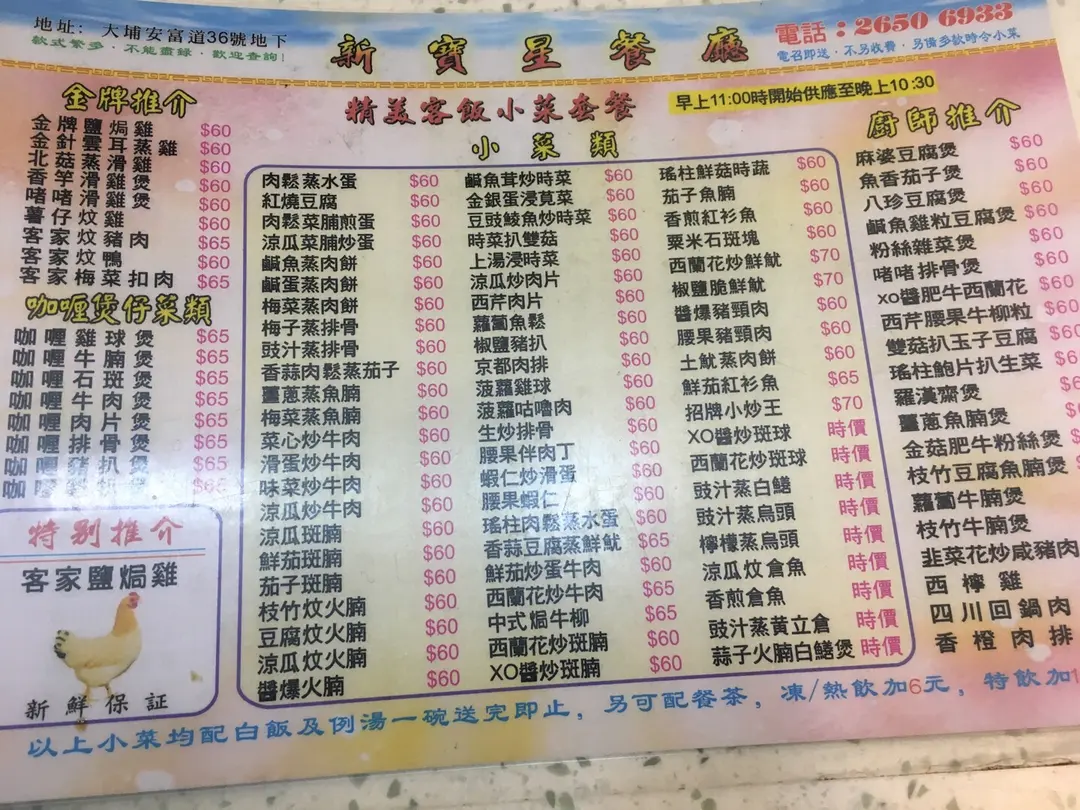 地址: 大埔安富道36號地下
款式繁多．不能盡錄．歡迎查詢!
新寶星餐廳
電話：2650 6933
電召即送．不另收費．另備多款時令小菜
精美客飯小菜套餐
早上11:00時開始供應至晚上10:30
金牌推介
金牌鹽焗雞 $60
金針雲耳蒸雞 $60
北菇蒸滑雞 $60
香竽滑雞煲 $60
啫啫滑雞煲 $60
薯仔炆雞 $60
客家炆豬肉 $65
客家炆鴨 $60
客家梅菜扣肉 $65
咖喱煲仔菜類
咖喱雞球煲 $65
咖喱牛腩煲 $65
咖喱石斑煲 $65
咖喱牛肉煲 $65
咖喱肉片煲 $65
咖喱排骨煲 $65
咖喱豬扒煲 $65
$65
特別推介
客家鹽焗雞
新鮮保証
小菜類
肉鬆蒸水蛋 $60
紅燒豆腐 $60
肉鬆菜脯煎蛋 $60
涼瓜菜脯炒蛋 $60
鹹魚蒸肉餅 $60
鹹蛋蒸肉餅 $60
梅菜蒸肉餅 $60
梅子蒸排骨 $60
豉汁蒸排骨 $60
香蒜肉鬆蒸茄子 $60
薑蔥蒸魚腩 $60
梅菜蒸魚腩 $60
菜心炒牛肉 $60
滑蛋炒牛肉 $60
味菜炒牛肉 $60
涼瓜炒牛肉 $60
涼瓜斑腩 $60
鮮茄斑腩 $60
茄子斑腩 $60
枝竹炆火腩 $60
豆腐炆火腩 $60
涼瓜炆火腩 $60
醬爆火腩 $60
鹹魚茸炒時菜 $60
金銀蛋浸莧菜 $60
豆豉鯪魚炒時菜 $60
時菜扒雙菇 $60
上湯浸時菜 $60
涼瓜炒肉片 $60
西芹肉片 $60
蘿蔔魚鬆 $60
椒鹽豬扒 $60
京都肉排 $60
菠蘿雞球 $60
菠蘿咕嚕肉 $60
生炒排骨 $60
腰果伴肉丁 $60
蝦仁炒滑蛋 $60
腰果蝦仁 $60
瑤柱肉鬆蒸水蛋 $60
香蒜豆腐蒸鮮魷 $65
鮮茄炒蛋牛肉 $60
西蘭花炒牛肉 $65
中式焗牛柳 $65
西蘭花炒斑腩 $60
XO醬炒斑腩 $60
瑤柱鮮菇時蔬 $60
茄子魚腩 $60
香煎紅衫魚 $60
粟米石斑塊 $60
西蘭花炒鮮魷 $70
椒鹽脆鮮魷 $70
醬爆豬頸肉 $60
腰果豬頸肉 $60
土魷蒸肉餅 $60
鮮茄紅衫魚 $65
招牌小炒王 $70
XO醬炒斑球 時價
西蘭花炒斑球 時價
豉汁蒸白鱔 時價
豉汁蒸烏頭 時價
檸檬蒸烏頭 時價
涼瓜炆倉魚 時價
香煎倉魚 時價
豉汁蒸黃立倉 時價
蒜子火腩白鱔煲 時價
廚師推介
麻婆豆腐煲 $60
魚香茄子煲 $60
八珍豆腐煲 $60
鹹魚雞粒豆腐煲 $60
粉絲雜菜煲 $60
啫啫排骨煲 $60
XO醬肥牛西蘭花 $60
西芹腰果牛柳粒 $60
雙菇扒玉子豆腐 $60
瑤柱鮑片扒生菜
羅漢齋煲
薑蔥魚腩煲
金菇肥牛粉絲煲
枝竹豆腐魚腩煲
蘿蔔牛腩煲
枝竹牛腩煲
韭菜花炒咸豬肉
西檸雞
四川回鍋肉
香橙肉排
以上小菜均配白飯及例湯一碗送完即止，另可配餐茶，凍/熱飲加6元，特飲加1